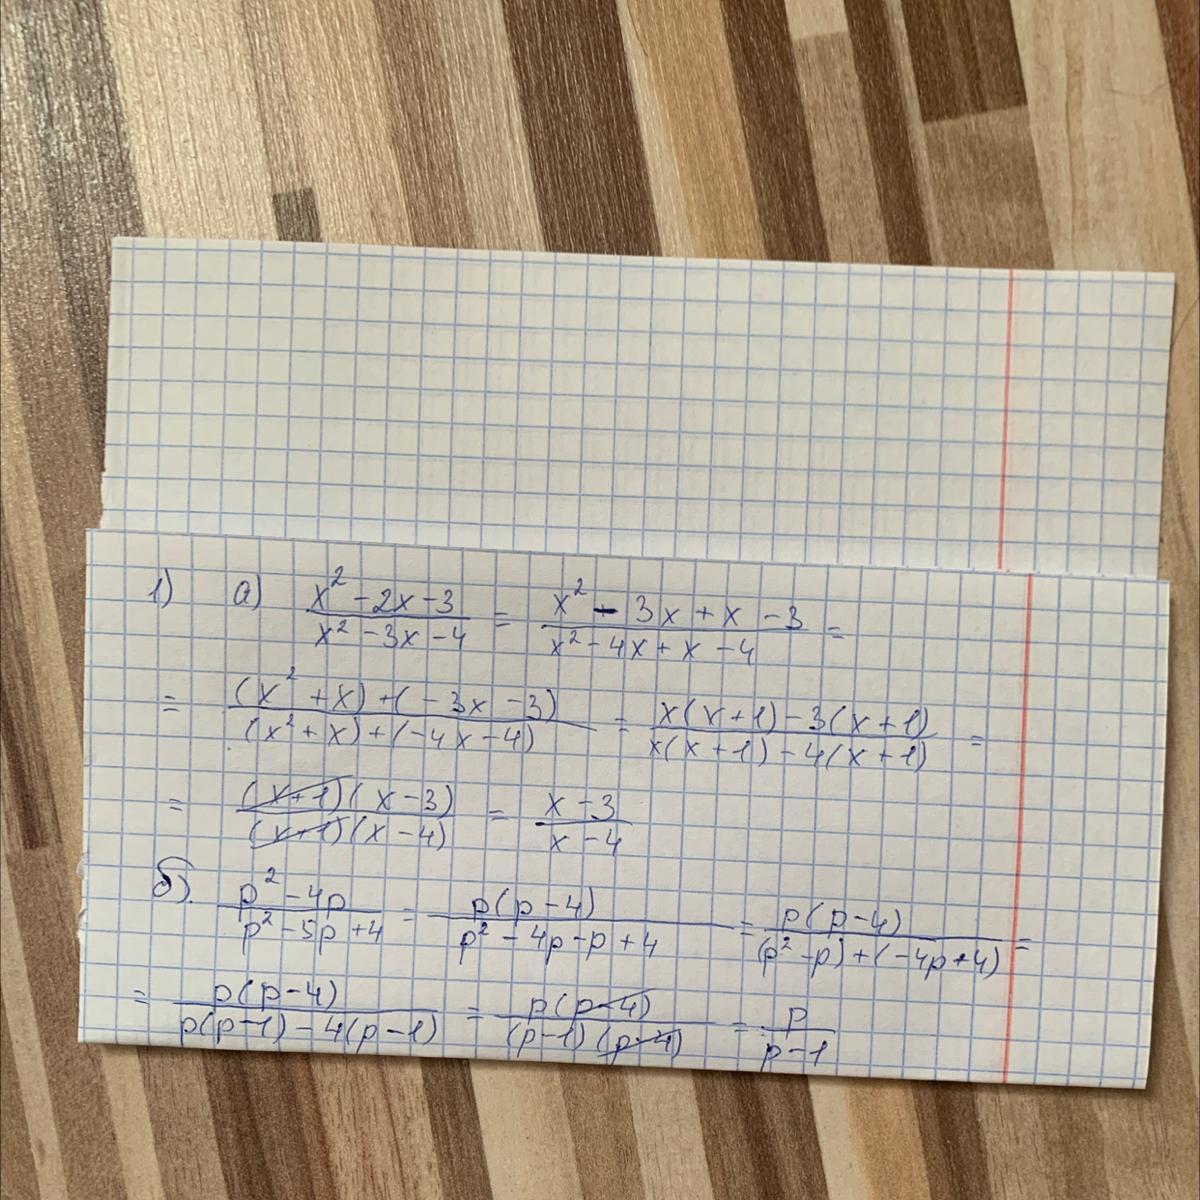 1) а) (x² - 2x - 3)/(x² - 3x - 4) = (x² - 3x + x - 3)/(x² - 4x + x - 4) =
= ((x² + x) + (-3x - 3))/((x² + x) + (-4x - 4)) = (x(x+1) - 3(x+1))/(x(x+1) - 4(x+1)) =
= ((x+1)(x-3))/((x+1)(x-4)) = (x-3)/(x-4)
б) (p² - 4p)/(p² - 5p + 4) = (p(p-4))/(p² - 4p - p + 4) = (p(p-4))/((p² - p) + (-4p + 4)) =
= (p(p-4))/(p(p-1) - 4(p-1)) = (p(p-4))/((p-1)(p-4)) = p/(p-1)